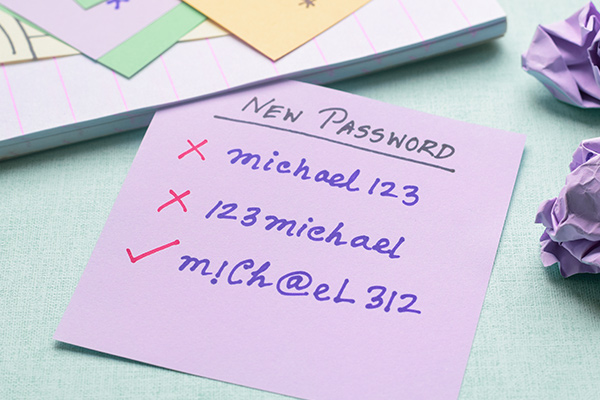 NEW PASSWORD
michael 123
123 michael
m!Ch@eL 312